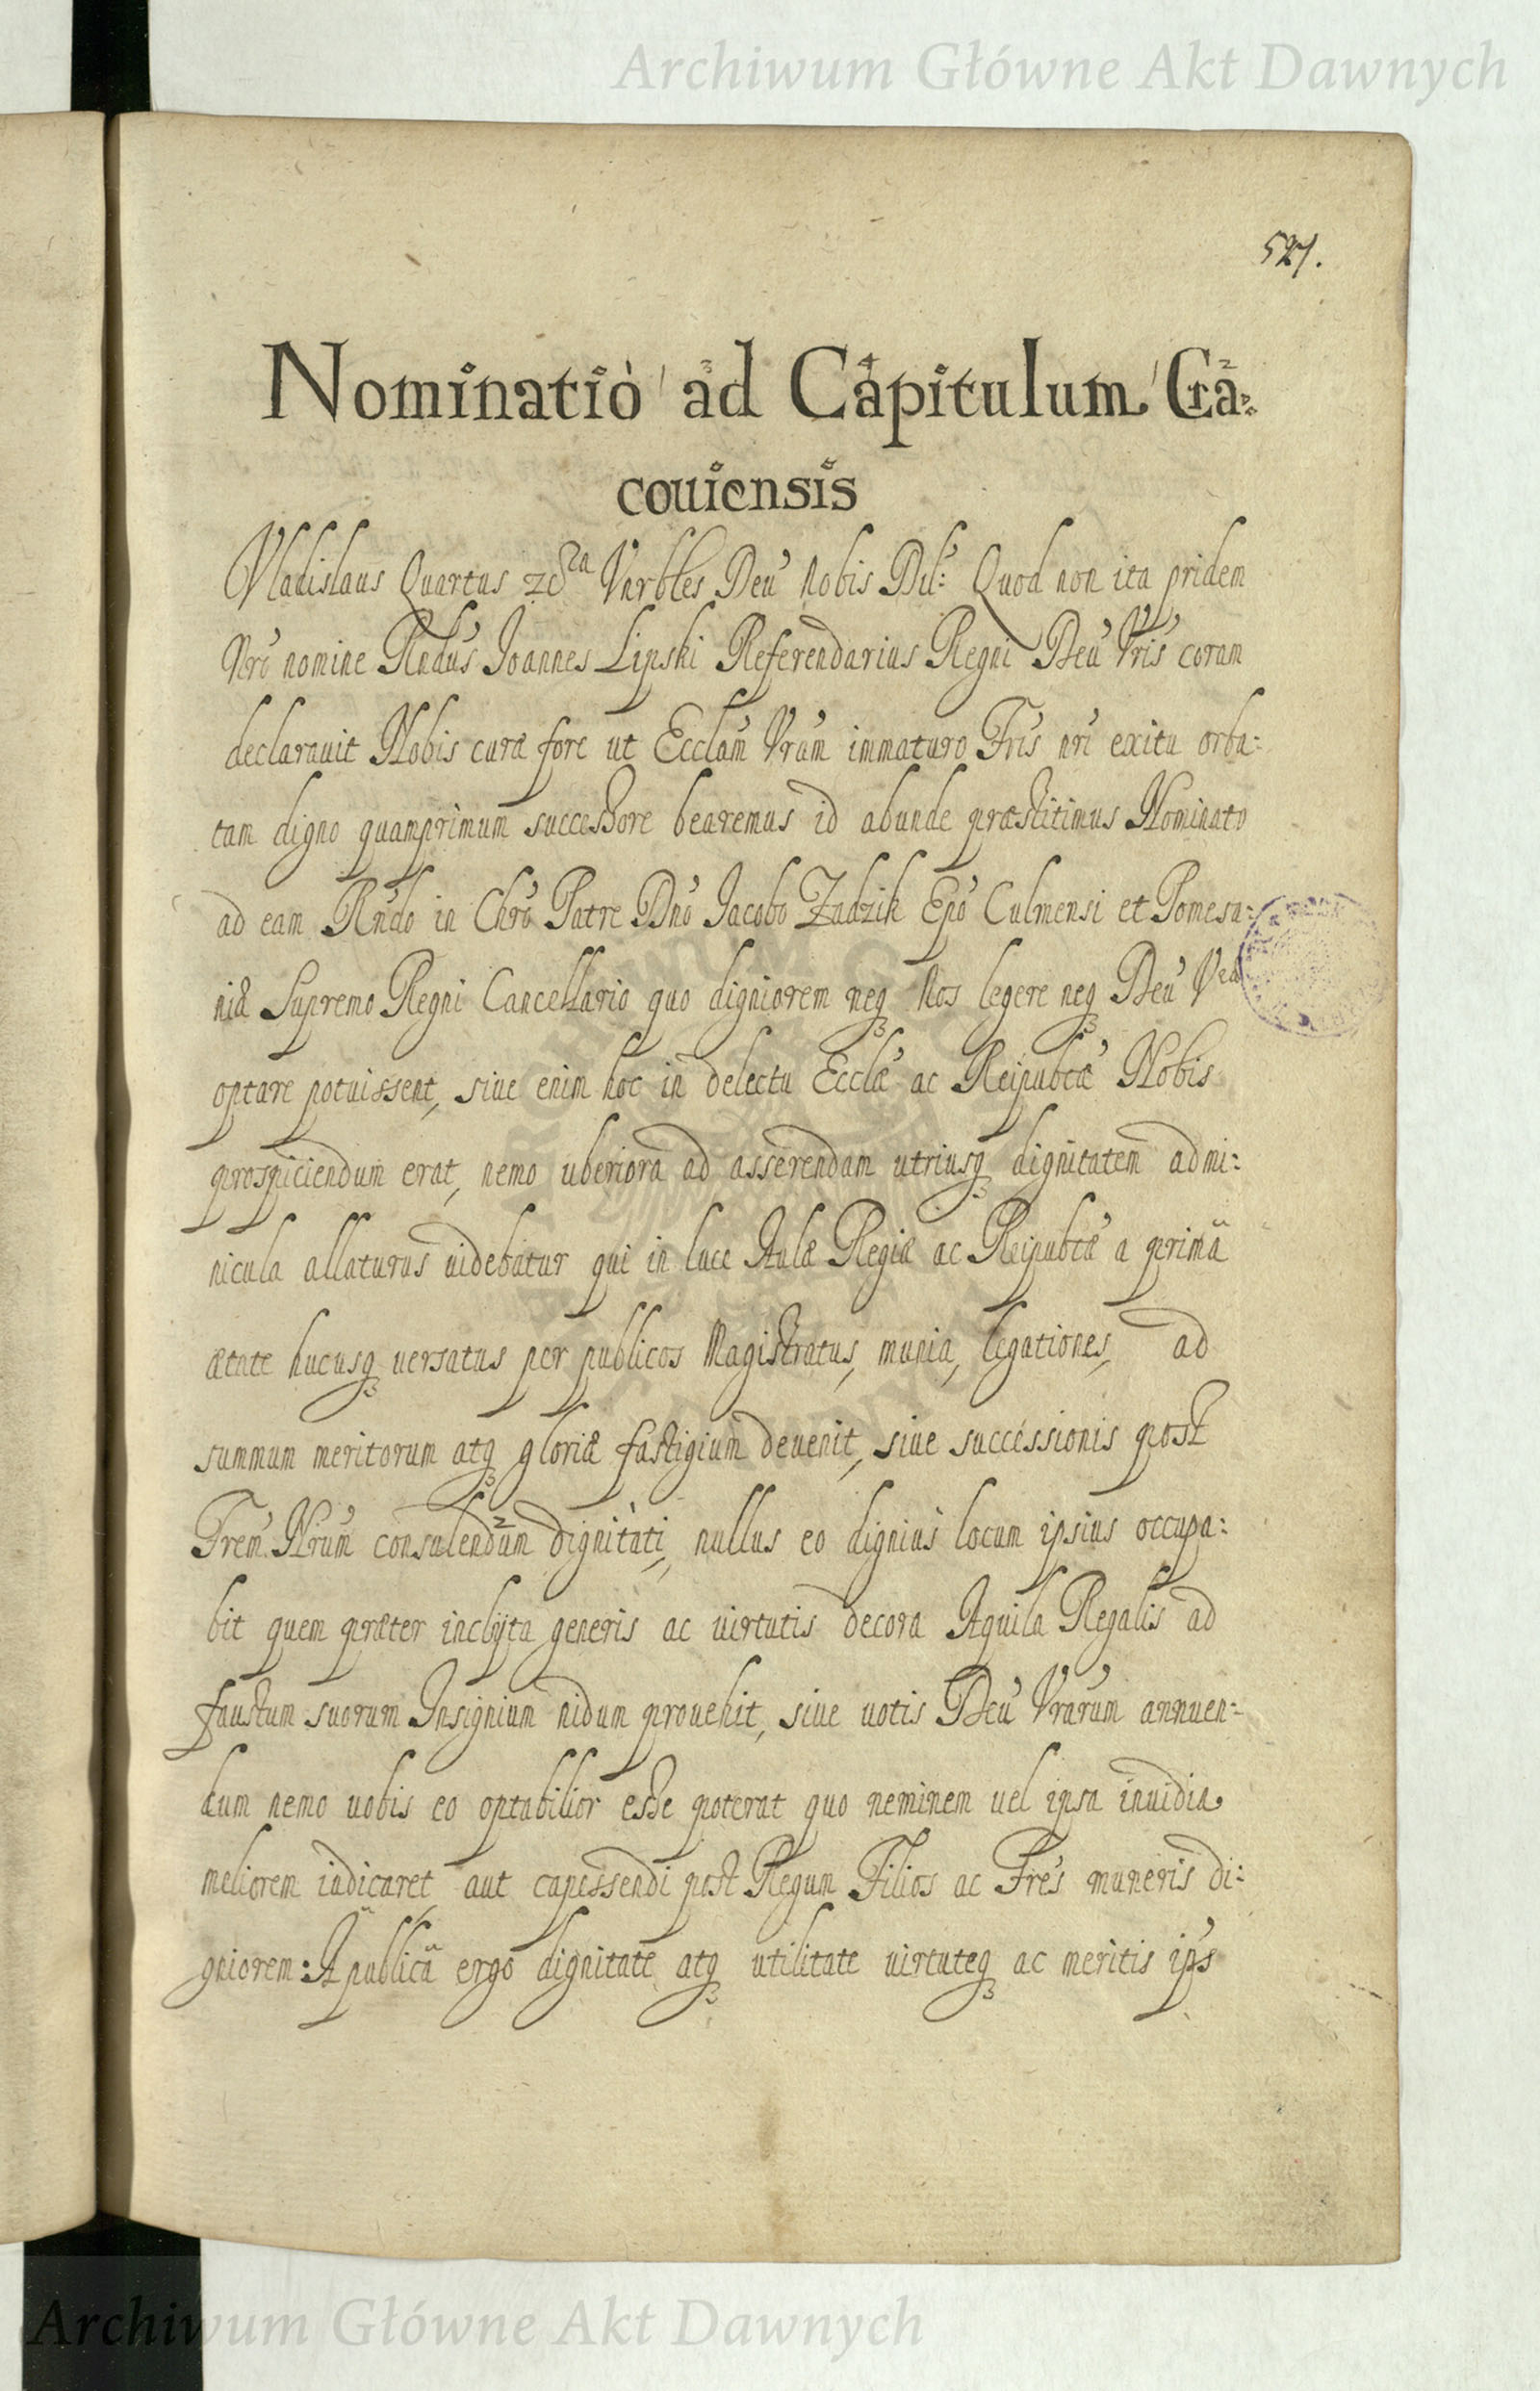 Archiwum Główne Akt Dawnych
527.
Nominatio ad Capitulum Cra:
couiensis
Vladislaus Quartus Vnrbles Deu' Nobis Dil: Quod non ita pridem
Vro nomine Rndus Joannes Lipski Referendarius Regni Deu' Vris coram
declarauit Nobis curæ fore ut Ecclam Vram immaturo Fris nri exitu orba:
tam digno quamprimum successore bearemus id abunde præstitimus Nominato
ad eam Rndo in Chro Patre Dno Jacobo Zadzik Epo Culmensi et Pomesa:
niæ Supremo Regni Cancellario quo digniorem neq3 Nos legere neq3 Deu'
optare potuissent, siue enim hoc in delectu Ecclæ ac Reipubcæ Nobis
prospiciendum erat, nemo uberiora ad asserendam utriusq3 dignitatem admi:
nicula allaturus uidebatur qui in luce Aulæ Regiæ ac Reipubcæ a primã
ætate hucusq3 uersatus per publicos Magistratus, munia, legationes, ad
summum meritorum atq3 gloriæ fastigium deuenit, siue successionis post
Frem Nrum consulendum dignitati, nullus eo dignius locum ipsius occupa:
bit quem præter inclyta generis ac uirtutis decora Aquila Regalis ad
faustum suorum Insignium nidum prouehit, siue uotis Deu' Vrarum annuen:
dum nemo uobis eo optabilior esse poterat quo neminem uel ipsa inuidia
meliorem iudicaret, aut capessendi post Regum Filios ac Fres muneris di:
gniorem: A publicã ergo dignitate atq3 utilitate uirtuteq3 ac meritis ips
Archiwum Główne Akt Dawnych